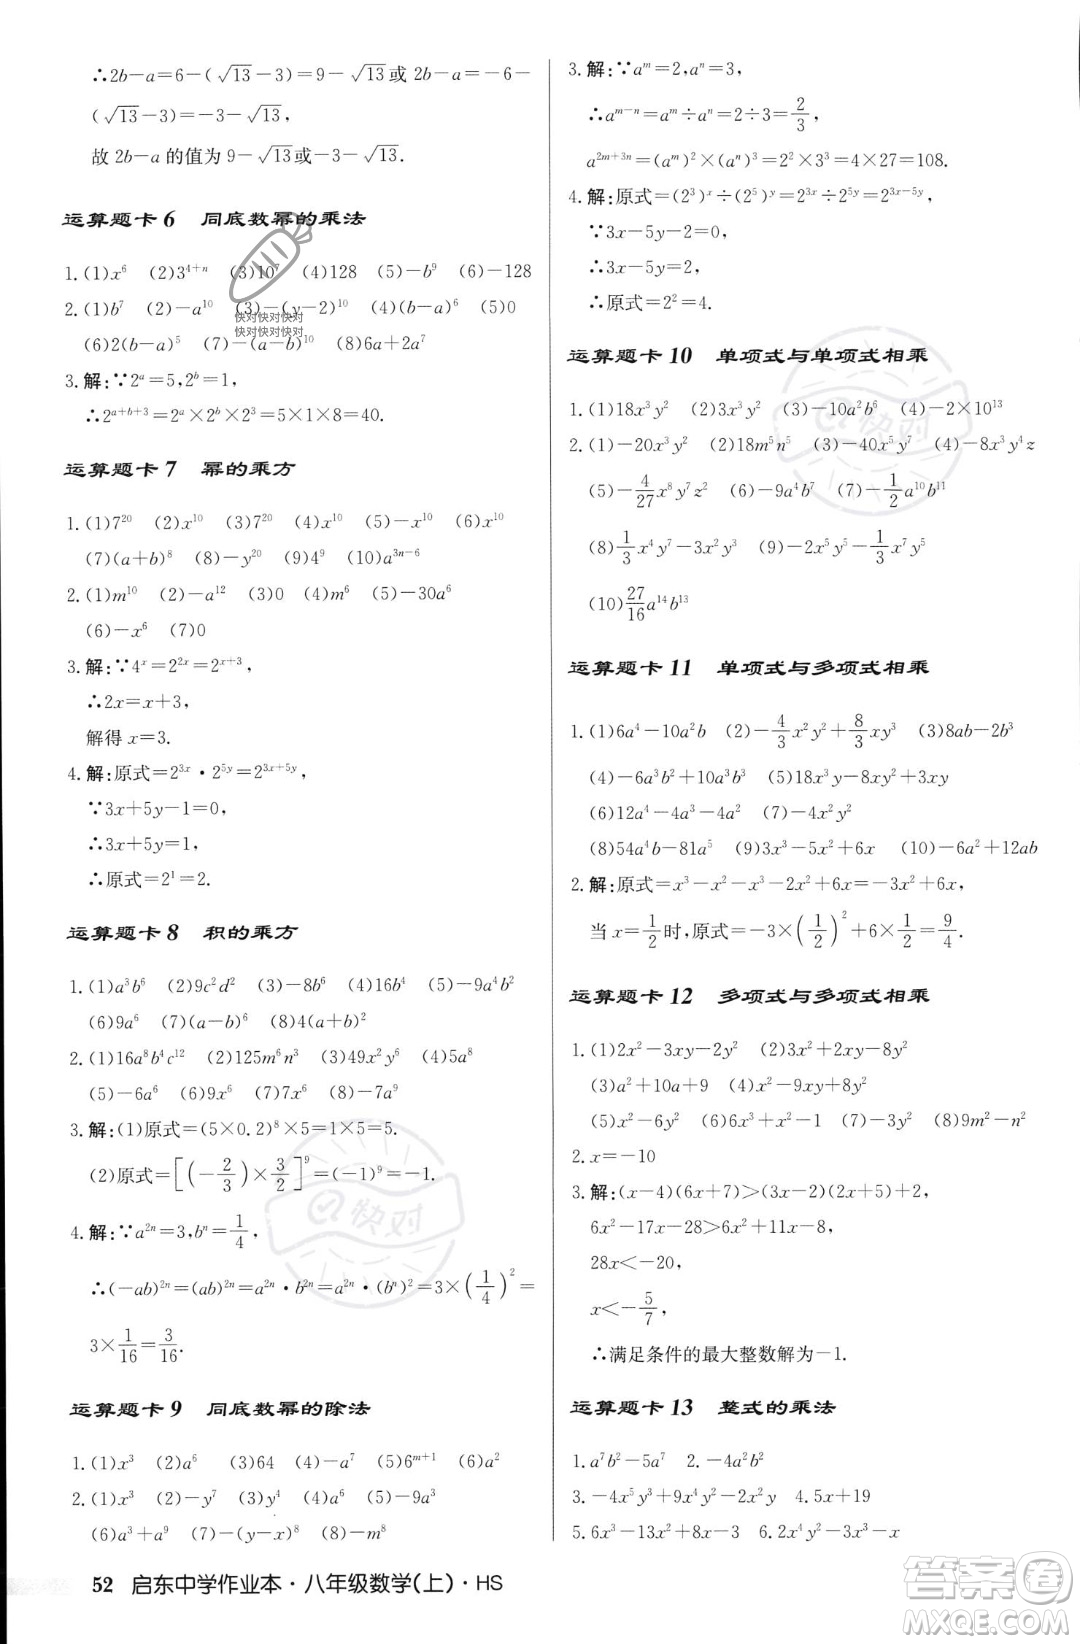 ∴2b－a＝6－(√13－3)＝9－√13或 2b－a＝－6－
(√13－3)＝－3－√13,
故 2b－a 的值为 9－√13或－3－√13.
运算题卡 6 同底数幂的乘法
1.(1)x⁶ (2)3⁴⁺ⁿ (3)10⁷ (4)128 (5)－b⁹ (6)－128
2.(1)b⁷ (2)－a¹⁰ (3)－(y－2)¹⁰ (4)(b－a)⁶ (5)0
(6)2(b－a)⁵ (7)－(a－b)¹⁰ (8)6x＋2a⁷
快对快对快对
快对快对快对
3.解:∵2ᵃ＝5,2ᵇ＝1,
∴2ᵃ⁺ᵇ⁺³＝2ᵃ×2ᵇ×2³＝5×1×8＝40.
运算题卡 7 幂的乘方
1.(1)7²⁰ (2)x¹⁰ (3)7²⁰ (4)x¹⁰ (5)－x¹⁰ (6)x¹⁰
(7)(a＋b)⁸ (8)－y²⁰ (9)4⁹ (10)a³ⁿ⁻⁶
2.(1)m¹⁰ (2)－a¹² (3)0 (4)m⁶ (5)－30a⁶
(6)－x⁶ (7)0
3.解:∵4ˣ＝2²ˣ＝2ˣ⁺³,
∴2x＝x＋3,
解得 x＝3.
4.解:原式＝2³ˣ·2⁵ʸ＝2³ˣ⁺⁵ʸ,
∵3x＋5y－1＝0,
∴3x＋5y＝1,
∴原式＝2¹＝2.
运算题卡 8 积的乘方
1.(1)a³b⁶ (2)9c²d² (3)－8b⁶ (4)16b⁴ (5)－9a⁴
(6)9a⁶ (7)(a－b)⁶ (8)4(a＋b)²
2.(1)16a⁸b⁴c¹² (2)125m⁶n³ (3)49x²y⁴ (4)5a⁸
(5)－6a⁶ (6)9x⁶ (7)7x⁶ (8)－7a⁹
3.解:(1)原式＝(5×0.2)⁸×5＝1×5＝5.
(2)原式＝[(－2/3)×3/2]⁹＝(－1)⁹＝－1.
4.解:∵a²ⁿ＝3,bⁿ＝1/4,
∴(－ab)²ⁿ＝(ab)²ⁿ＝a²ⁿ·b²ⁿ＝a²ⁿ·(bⁿ)²＝3×(1/4)²＝
3×1/16＝3/16.
运算题卡 9 同底数幂的除法
1.(1)x³ (2)a⁶ (3)64 (4)－a⁷ (5)6ᵐ⁺¹ (6)a²
2.(1)x³ (2)－y⁷ (3)y⁴ (4)x³ (5)－9a³
(6)a³＋a⁹ (7)－(x－y)⁸ (8)－m⁸
52 启东中学作业本·八年级数学(上)·HS
3.解:∵aᵐ＝2,aⁿ＝3,
∴aᵐ⁻ⁿ＝aᵐ÷aⁿ＝2÷3＝2/3,
a²ᵐ⁺³ⁿ＝(aᵐ)²×(aⁿ)³＝2²×3³＝4×27＝108.
4.解:原式＝(2³)ˣ÷(2⁵)ʸ＝2³ˣ÷2⁵ʸ＝2³ˣ⁻⁵ʸ,
∵3x－5y－2＝0,
∴3x－5y＝2,
∴原式＝2²＝4.
运算题卡 10 单项式与单项式相乘
1.(1)18x³y² (2)3x³y² (3)－10a²b⁶ (4)－2×10¹³
2.(1)－20x³y² (2)18m⁵n⁵ (3)－40x⁵y⁷ (4)－8x³y⁴z
(5)－4/27x⁸y⁷z² (6)－9a⁴b⁷ (7)－1/2a¹⁰b¹¹
(8)1/3x⁴y⁷－2x³y³ (9)－2x⁵y⁵－1/3x⁷y⁵
(10)27/16a¹⁴b¹³
运算题卡 11 单项式与多项式相乘
1.(1)6a⁴－10a²b (2)－4/3x²y²＋8/3xy³ (3)9ab－2b³
(4)－6a³b²＋10a³b³ (5)－2x²y＋2xy²＋3xy
(6)12a⁴－4a³－4a² (7)－2x²y²
(8)54a⁴b－81a⁵ (9)3x³－5x²＋6x (10)－6a²＋12ab
2.解:原式＝x³－x²－x³－2x²＋6x＝－3x²＋6x,
当 x＝1/2时,原式＝－3×(1/2)²＋6×1/2＝9/4.
运算题卡 12 多项式与多项式相乘
1.(1)2x²－3xy－2y² (2)3x²－14xy＋8y²
(3)a²＋10a＋9 (4)6x²－xy－12y²
(5)x²－6x＋8 (6)x³＋x²－x－1 (7)x³－y³ (8)9m²－n²
2.x＝－10
3.解:(x－4)(6x＋7)＞(3x－2)(2x＋5)＋2,
6x²－17x－28＞6x²＋11x－8,
28x＜－20,
x＜－5/7,
∴满足条件的最大整数解为－1.
运算题卡 13 整式的乘法
1.a⁷b²－5a⁷ 2.－4a²b²
3.－4x⁵y³＋9x⁴y⁴－2x²y⁵ 4.5x＋19
5.6x³－13x²＋4x＋3 6.2x³－4x²y－2xy²
快对
快对
答案圈
MXQE.COM